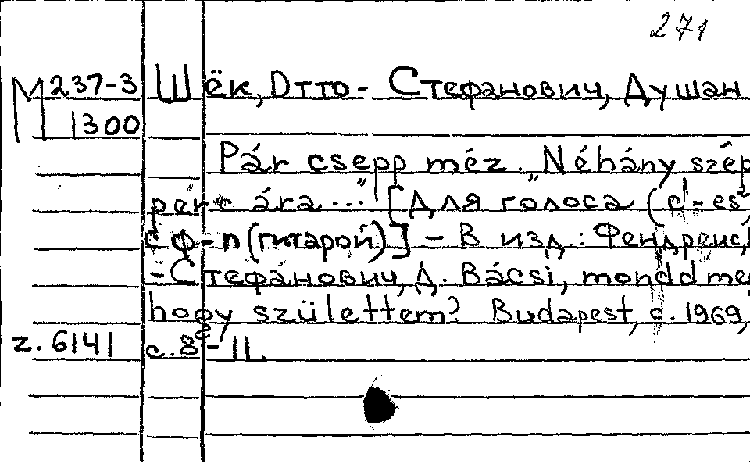 271
М 237-3 Шёк, Отто - Стефанович, Душан
1300
Pár csepp méz. „Néhány szép
perc ára ..." [Для голоса (c¹-es²
с ф-п (гитарой)] - В изд: Фендреис,
- Стефанович, Д. Bácsi, mondd me
hogy születtem? Budapest, c. 1969,
z. 6141 c. 8 - 11.